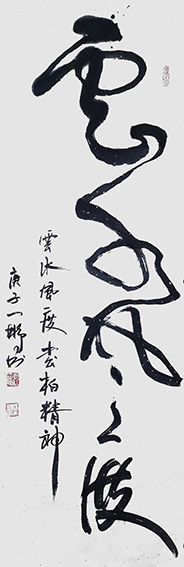 雲水風度
雲水風度 松柏精神
庚子一